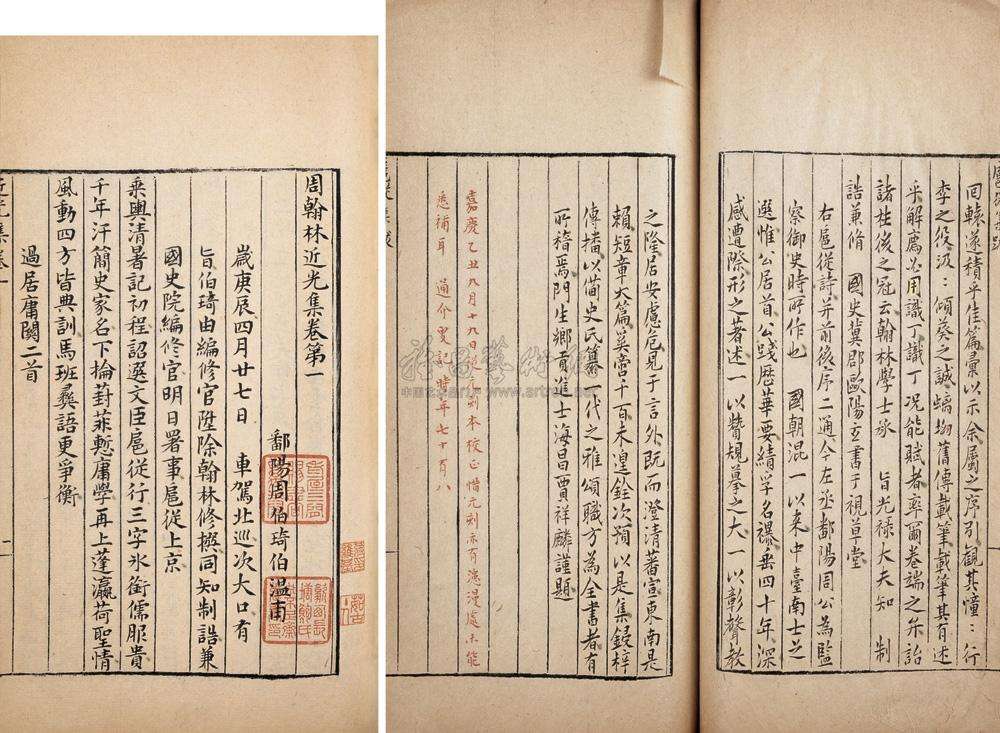 周翰林近光集卷第一
鄱陽周伯琦伯溫甫
歲庚辰四月廿七日　車駕北巡次大口有
旨伯琦由編修官陞除翰林修撰同知制誥兼
國史院編修官明日署事扈從上京
乘輿清暑記初程詔選文臣扈從行三字氷銜儒服貴
千年汗簡史家名下掄葑菲慙庸學再上蓬瀛荷聖情
風動四方皆典訓馬班彝語更爭衡
過居庸關二首
回轅遂積平佳篇彙以示余屬之序引觀其憧：行
李之役汲：傾葵之誠螭坳舊傳載筆載筆其有述
乎解廌必用識丁識丁况能賦者率爾卷端之尒詒
諸柱後之冠云翰林學士承　旨光禄大夫知　制
誥兼脩　國史冀郡歐陽玄書于視草堂
右扈從詩并前後序二通今左丞鄱陽周公為監
察御史時所作也　國朝混一以来中臺南士之
選惟公居首公踐歷華要績學名瀑垂四十年深
感遭際形之著述一以贊規摹之大一以彰聲教
之隆居安慮危見于言外既而澄清蕃宣東南是
賴短章大篇奚啻千百未遑銓次預以是集鋟梓
傳播以備史氏纂一代之雅頌職方為全書者有
所稽焉門生鄉貢進士海昌賈祥麟謹題
嘉慶乙丑九月十九日刻本校正惜元刻亦有漶漫處未能
悉補耳　通介叟記時年七十有八